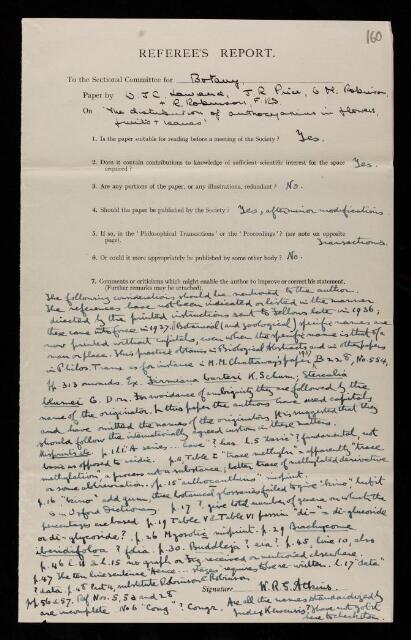 160
REFEREE'S REPORT.
To the Sectional Committee for Botany
Paper by W. J. C. Lawrence, J. R. Price, G. M. Robinson
+ R. Robinson, F.R.S.
On "The distribution of anthocyanins in flowers,
fruits + leaves"
1. Is the paper suitable for reading before a meeting of the Society? Yes.
2. Does it contain contributions to knowledge of sufficient scientific interest for the space
required? Yes.
3. Are any portions of the paper, or any illustrations, redundant? No.
4. Should the paper be published by the Society? Yes, after minor modifications
5. If so, in the 'Philosophical Transactions' or the 'Proceedings'? (see note on opposite
page). Transactions.
6. Or could it more appropriately be published by some other body? No.
7. Comments or criticisms which might enable the author to improve or correct his statement.
(Further remarks may be attached).
The following considerations should be mentioned to the author.
The references have not been indicated or listed in the manner
directed by the printed instructions sent to Fellows late in 1936;
these came into force in 1937. Botanical (and zoological) specific names are
now printed without capitals, even when the specific name is that of a
man or place. This practice obtains in Biological Abstracts and in other papers
in Philos. Trans. as for instance in M. M. Chattaway's paper, B 228, No. 554,
pp 313 onwards. Ex. Firmiana barteri K. Schum; Sterculia
blumei G. Don. For avoidance of ambiguity they are followed by the
name of the originator. In this paper the authors have used capitals
and have omitted the names of the originators. It is suggested that they
should follow the internationally agreed custom in these matters.
Misprints etc. p. 1 l. "A series
basic as opposed to acidic. p. 11 Table 2 "trace methylin" = apparently "trace
methylation", a process not a substance, better trace of methylated derivative
or some alteration. p. 15 "anthocanthins" misprint.
p. 16 "kino" add gum, three botanical glossaries failed to give "kino" but it
is in Oxford Dictionary. p. 17 ? give total number of genera on which the
percentages are based p. 19 Table V + Table VI "di-" = di-glucoside
or di-glycoside? p. 26 Myosotis misprint. p. 29 Brachycome
iberidifolia ? p. 30 Buddleja ? p. 45, line 10, also
p. 46 l. 4 & l. 15 no
p. 47 The ten line sentence "Hence requires to be re-written. l. 17 "data"
? data. p. 48 substitute Robinson & Robinson
pp. 56 & 57. Ref. Nos. 5, 5a and 28
are incomplete. No 6 "Cong" ? Congr.
Signature W. R. G. Atkins.
Are all the names standardized by
Index Kewensis? I have not got it
here to check them.